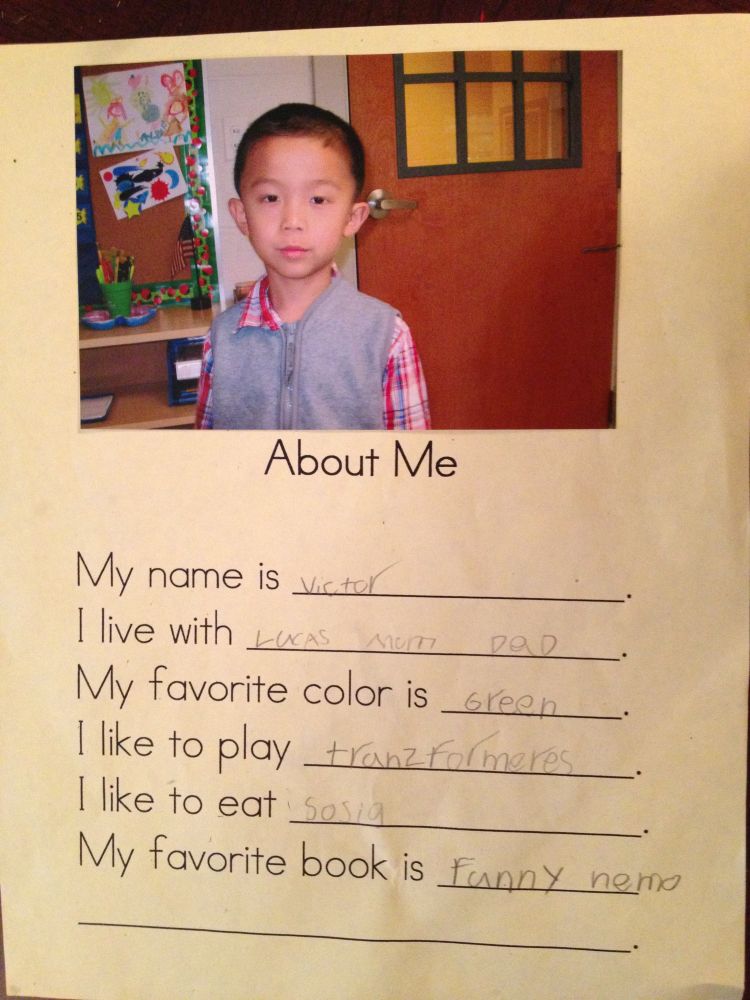 About Me
My name is Victor.
I live with LUCAS MOM DAD.
My favorite color is Green.
I like to play tranzformeres.
I like to eat Sosig.
My favorite book is Funny nemo
.